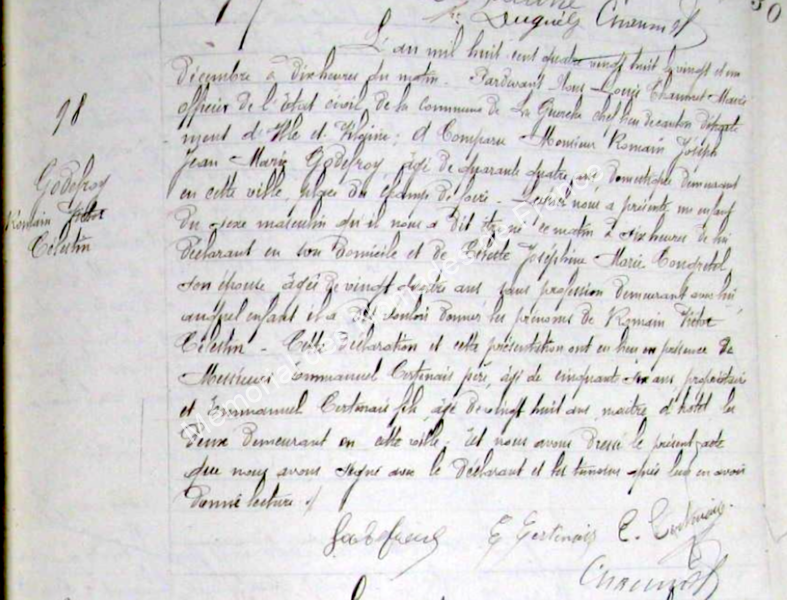 30
Dugués Chaumont
L'an mil huit cent quatre vingt huit le vingt et un
décembre à dix heures du matin. Pardevant Nous Louis Chaumet Maire
officier de l'état civil de la commune de La Guerche chef lieu de canton départe
ment d'Ille et Vilaine; A Comparu Monsieur Romain Joseph
Jean Marie Godefroy, âgé de quarante quatre ans domestique demeurant
en cette ville, place du champ de foire. Lequel nous a présenté un enfant
du sexe masculin qu'il nous a dit être né ce matin à six heures de lui
déclarant en son domicile et de Céleste Joséphine Marie
son épouse âgée de vingt quatre ans sans profession demeurant avec lui
auquel enfant il a dit vouloir donner les prénoms de Romain Victor
Célestin. Cette déclaration et cette présentation ont eu lieu en présence de
Messieurs Emmanuel Certenais père, âgé de cinquante six ans, propriétaire
et Emmanuel Certenais fils âgé de vingt huit ans, maître d'hôtel les
deux demeurant en cette ville; Et nous avons dressé le présent acte
que nous avons signé avec le déclarant et les témoins après leur en avoir
donné lecture ./
98
Godefroy
Romain Victor
Célestin
Godefroy E Certenais E. Certenais
Chaumet